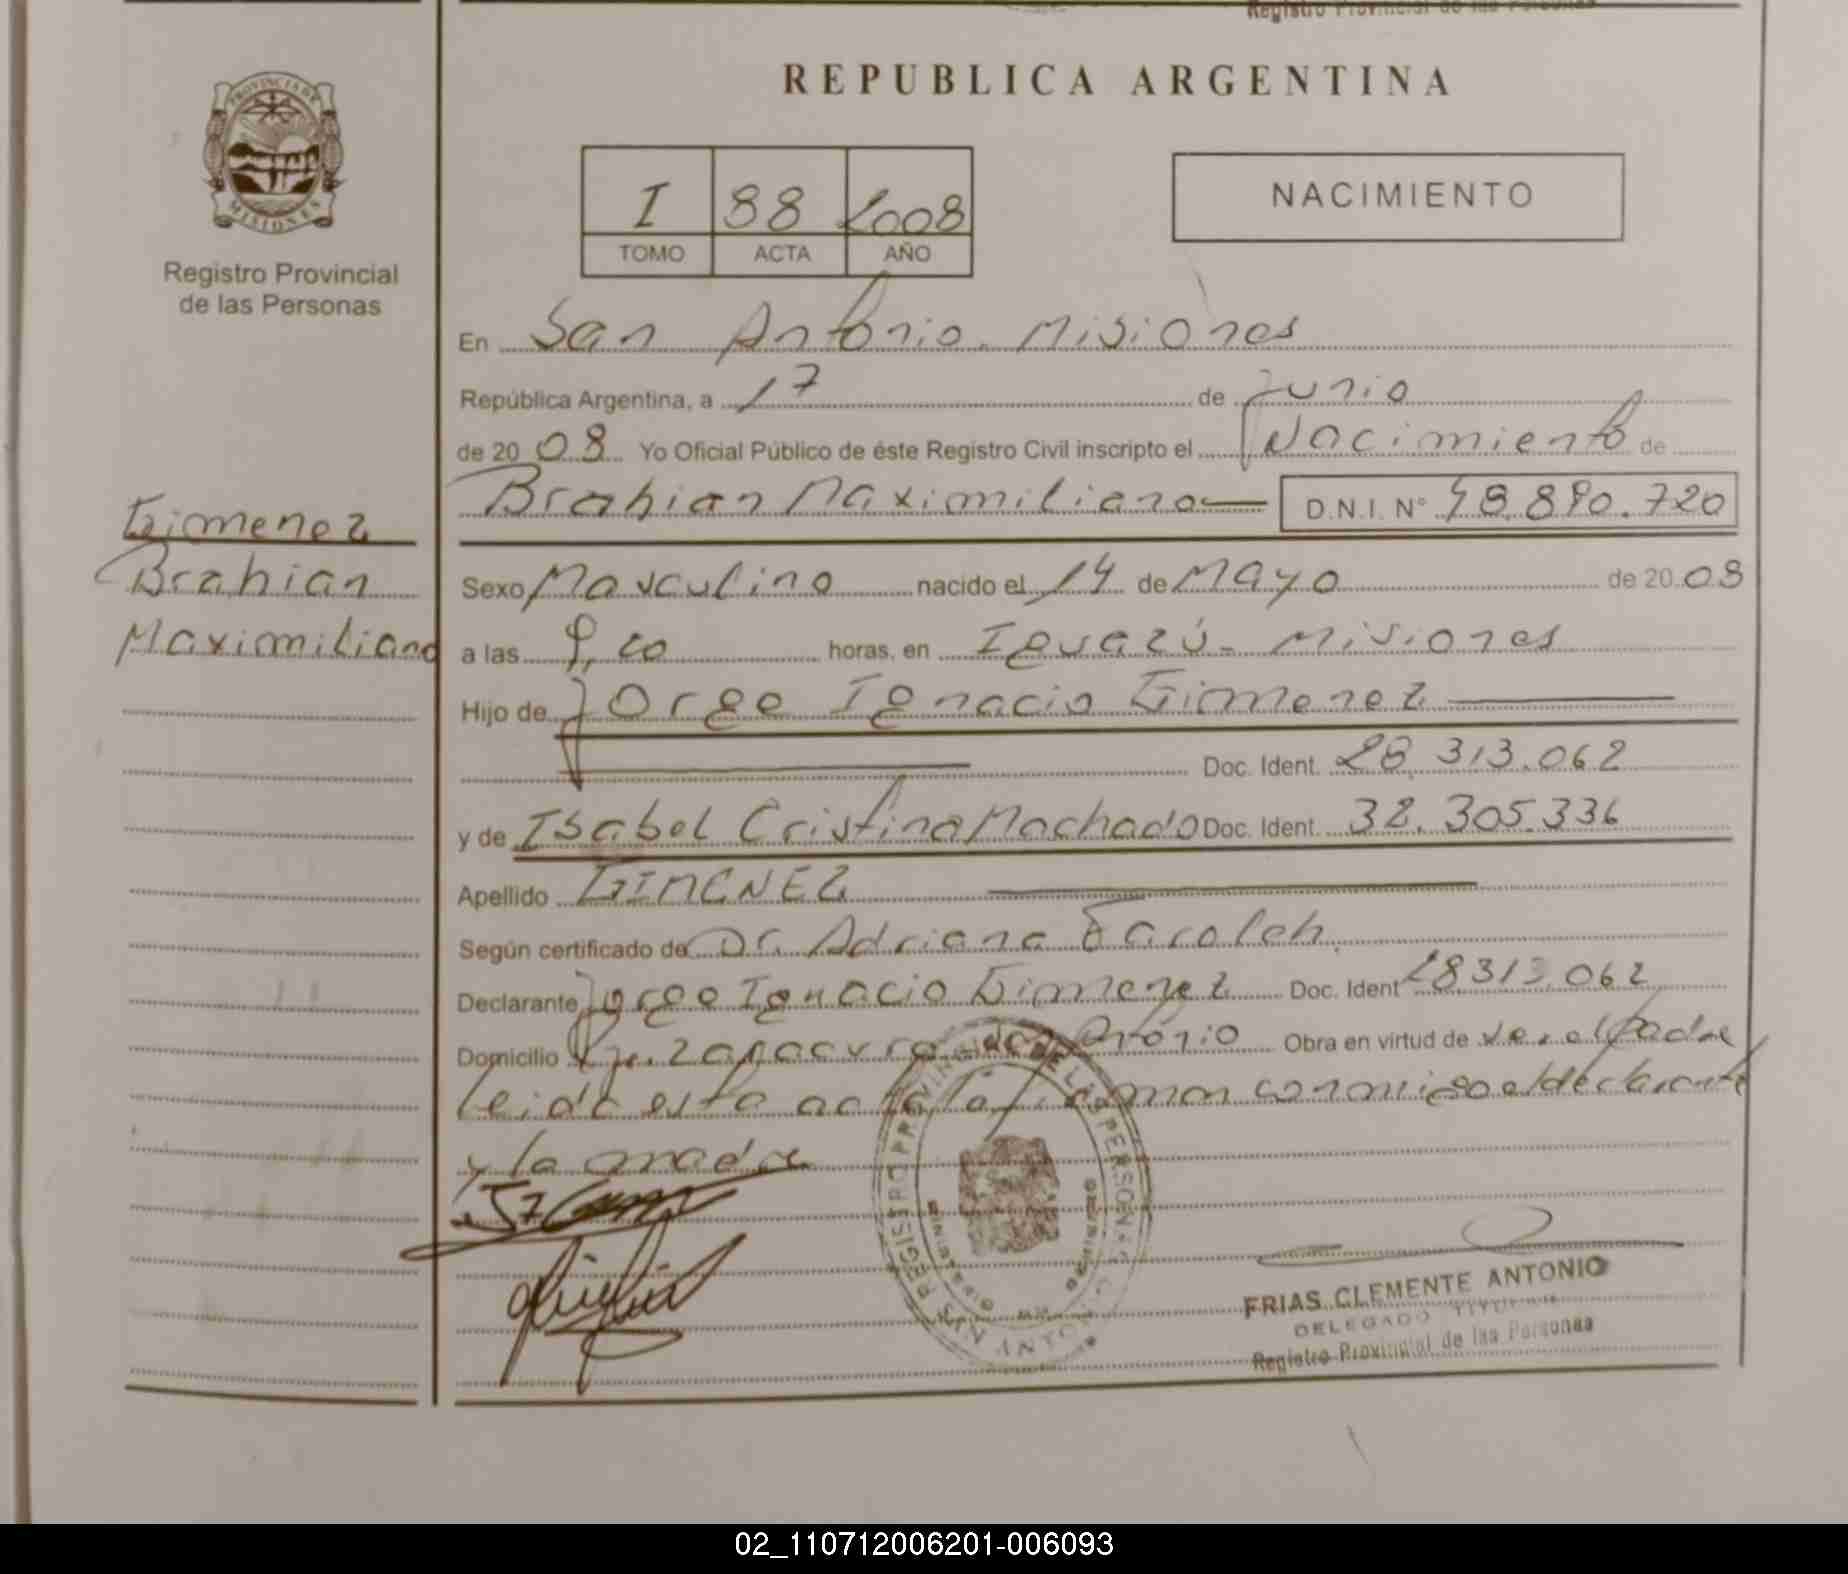 Registro Provincial de las Personas
REPUBLICA ARGENTINA
PROVINCIA DE
MISIONES
Registro Provincial
de las Personas
I 88 2008
TOMO ACTA AÑO
NACIMIENTO
En San Antonio. Misiones
República Argentina, a 17 de Junio
de 2008 Yo Oficial Público de éste Registro Civil inscripto el Nacimiento de
Brahian Maximiliano D.N.I. Nº 48.890.720
Gimenez
Brahian
Maximiliano
Sexo Masculino nacido el 14 de Mayo de 2008
a las horas, en Iguazú - Misiones
Hijo de Jorge Ignacio Gimenez
Doc. Ident. 28.313.062
y de Isabel Cristina Machado Doc. Ident. 32.305.336
Apellido GIMENEZ
Según certificado de Dr. Adriana
Declarante Jorge Ignacio Gimenez Doc. Ident 28313.062
Domicilio San Antonio Obra en virtud de ser el Padre
Leida esta acta la firman conmigo el declarante
y la madre
REGISTRO PROVINCIAL DE LAS PERSONAS
SAN ANTONIO
FRIAS CLEMENTE ANTONIO
DELEGADO TITULAR
Registro Provincial de las Personas
02_110712006201-006093